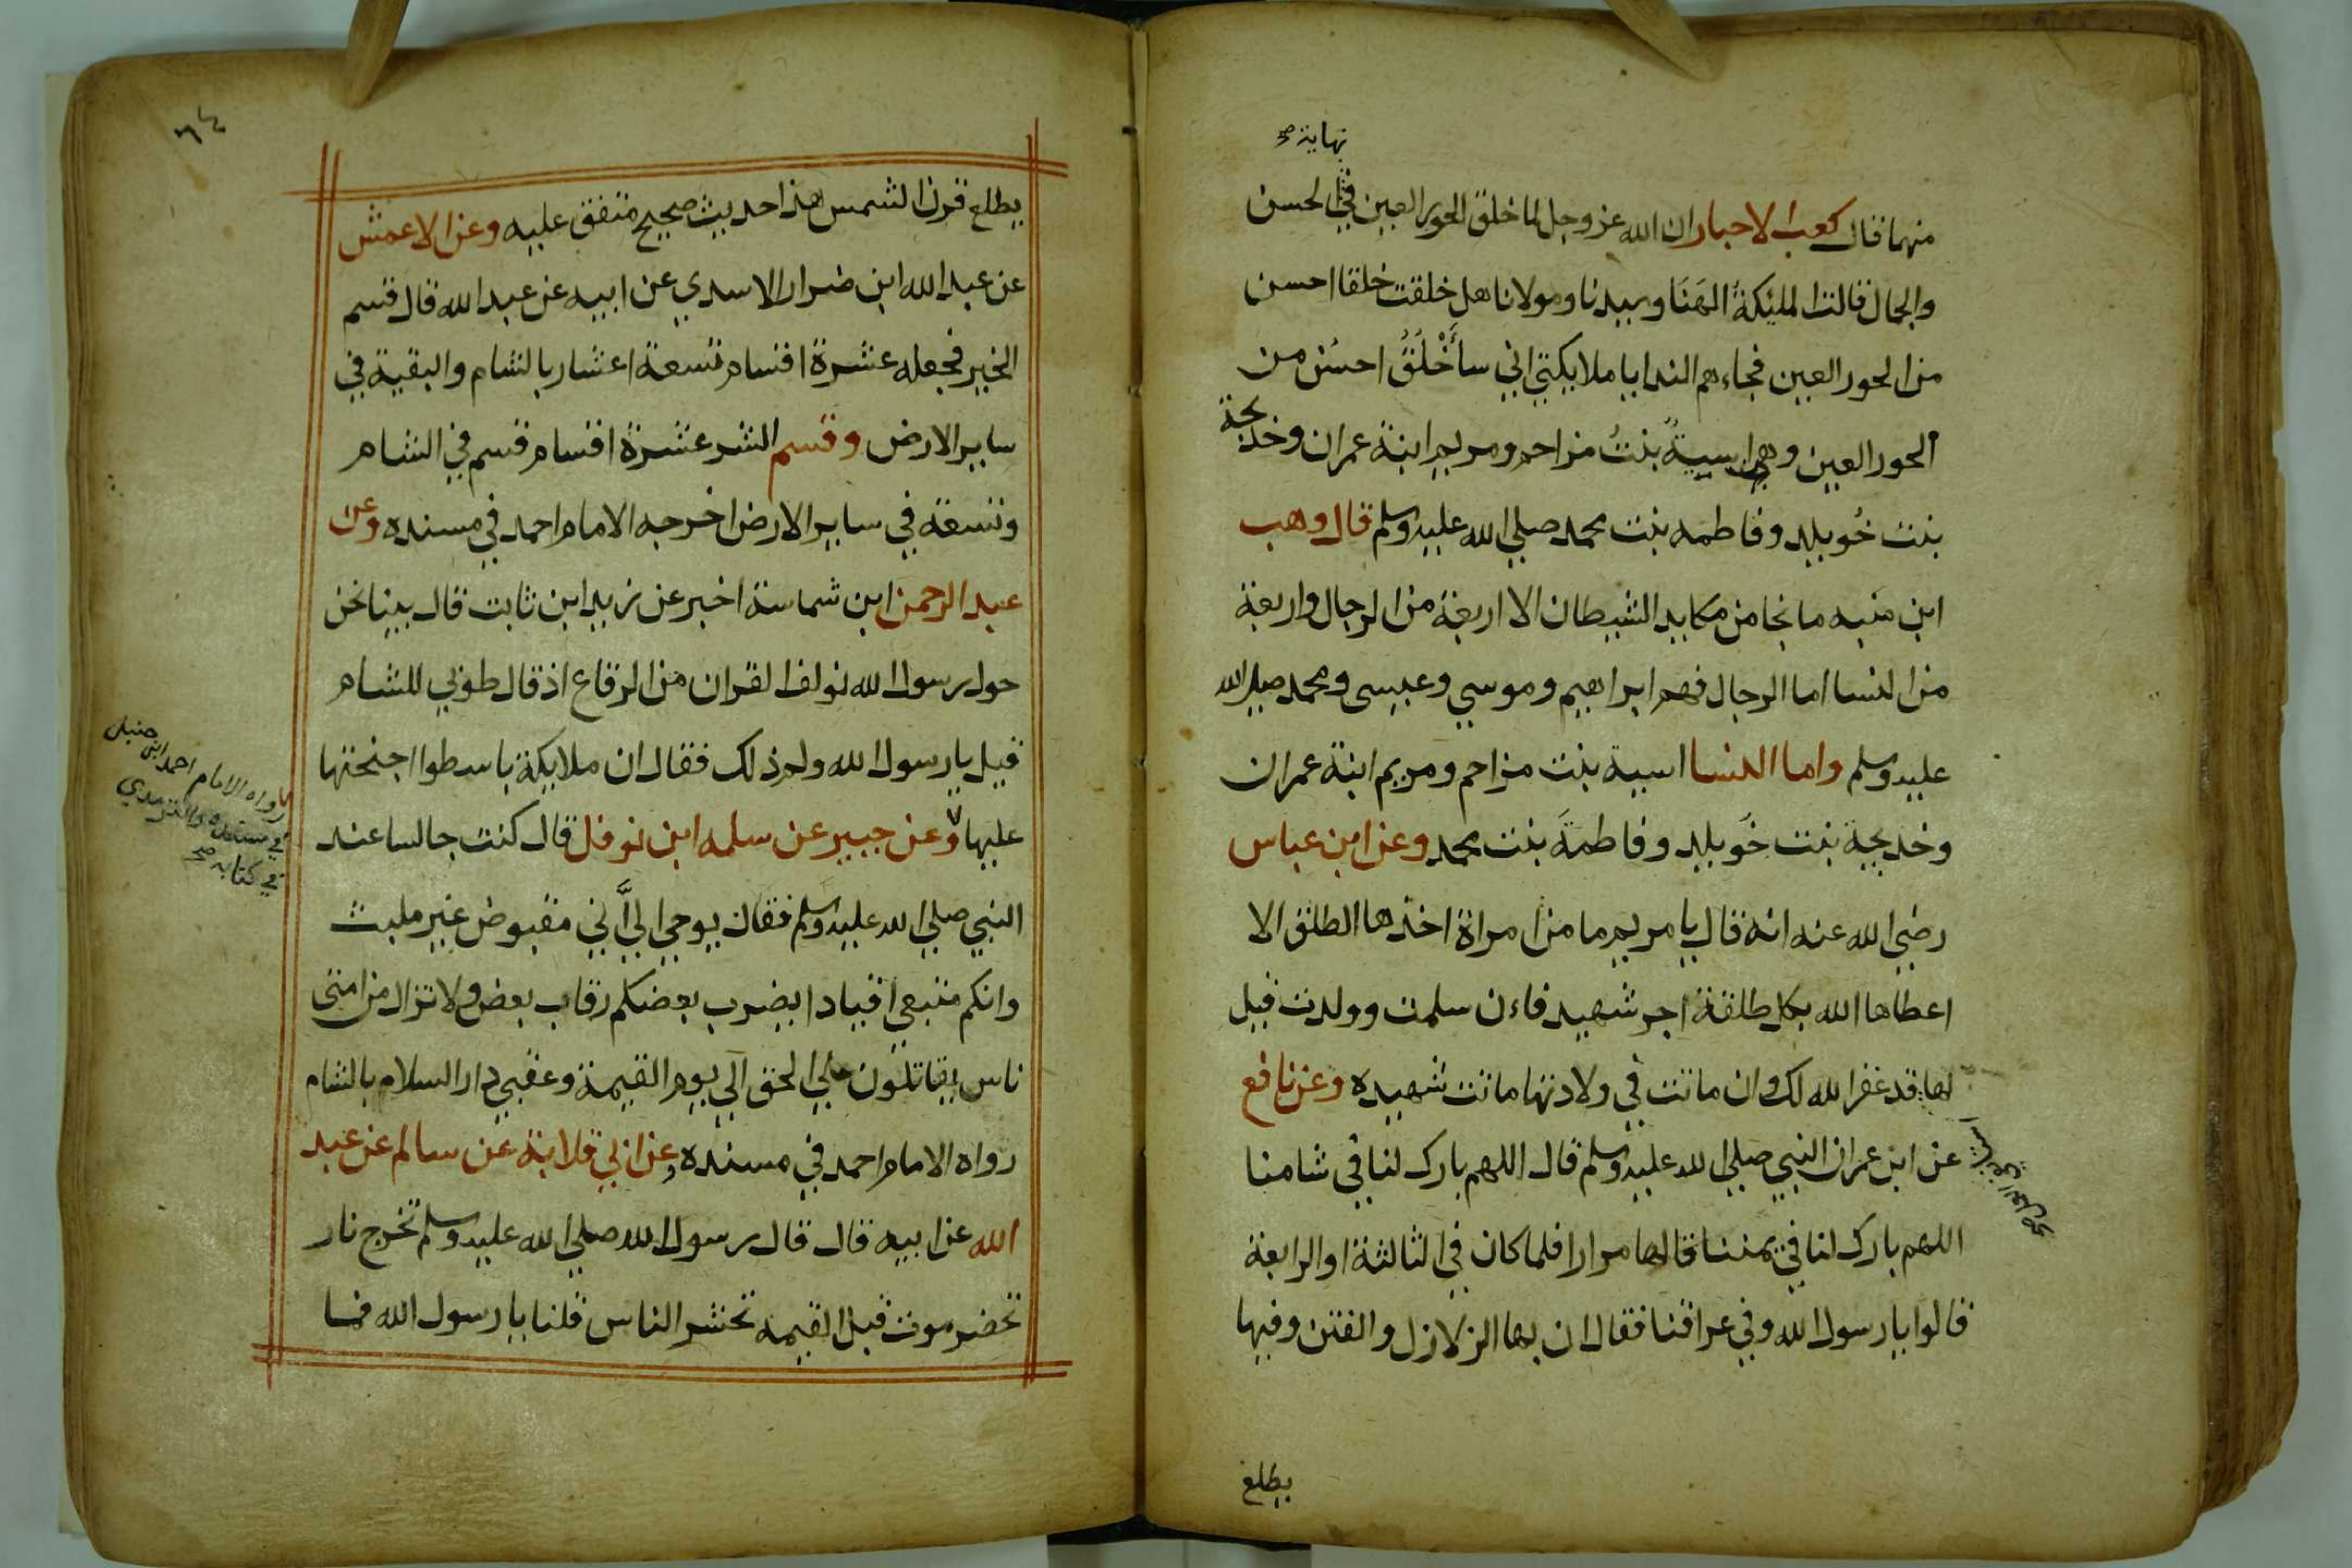 نهاية صح
منهما قال كعب الاحبار ان الله عز وجل لما خلق الحور العين في الحسن
والجمال قالت المليكة الهَنَا وسيدنا ومولانا هل خلقت خلقا احسن
من الحور العين فجاءهم الندا يا ملايكتي اني سأَخْلُقُ احسُن من
الحور العين وهي اسيةُ بنتُ مزاحم ومريم ابنة عمران وخديجة
بنت خُويلد وفاطمه بنت محمد صلي الله عليه وسلم قال وهب
ابن منبه ما نجا من مكايد الشيطان الا اربعة من الرجال واربعة
من النسا اما الرجال فهم ابراهيم وموسي وعيسى ومحمد صلي الله
عليه وسلم واما النسا اسية بنت مزاحم ومريم ابنة عمران
وخديجة بنت خُويلد وفاطمَة بنت محمد وعن ابن عباس
رضي الله عنه انه قال يا مريم ما من امراة اخذها الطلق الا
اعطاها الله بكل طلقة اجر شهيد فاءن سلمت وولدت قيل
لها قد غفر الله لك وان ماتت في ولادتها ماتت شهيده وعن نافع
عن ابن عمران النبي صلي الله عليه وسلم قال اللهم بارك لنا في شامنا
اللهم بارك لنا في يمننا قالها مرارا فلما كان في الثالثة او الرابعة
قالوا يا رسول الله وفي عراقنا فقال ان بها الزلازل والفتن وفيها
يطلع
٦٤
يطلع قرن الشمس هذا حديث صحيح متفق عليه وعن الاعمش
عن عبد الله ابن ضرار الاسدي عن ابيه عن عبد الله قال قسم
الخير فجعله عشرة اقسام تسعة اعشار بالشام والبقية في
ساير الارض وقسم الشر عشرة اقسام قسم في الشام
وتسعة في ساير الارض اخرجه الامام احمد في مسنده وعن
عبد الرحمن ابن شماسة اخبر عن زيد ابن ثابت قال بينا نحن
حول رسول الله نولف القران من الرقاع اذ قال طوبي للشام
قيل يا رسول الله ولم ذلك فقال ان ملايكة باسطوا اجنحتها
عليها وعن جبير عن سلمه ابن نوفل قال كنت جالسا عند
النبي صلي الله عليه وسلم فقال يوحي اليَّ اَني مقبوض غير ملبث
وانكم متبعي افيادا يضرب بعضكم رقاب بعض ولا تزال من امتى
ناس يقاتلون علي الحق الي يوم القيمة وعقبي دار السلام بالشام
رواه الامام احمد في مسنده وعن ابي قلابة عن سالم عن عبد
الله عن ابيه قال قال رسول الله صلي الله عليه وسلم تخرج نار
تحضر موت قبل القيمه تحشر الناس قلنا يا رسول الله فما
رواه الامام احمد ابن حنبل
في مسنده والترمدي
في كتابه صح